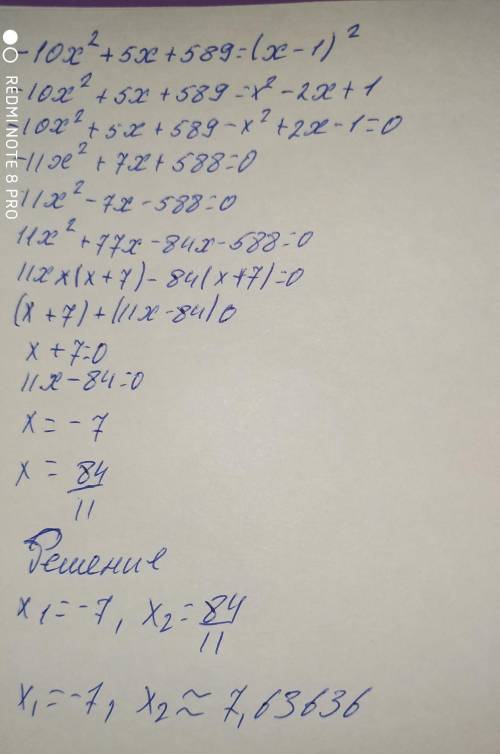 -10x² + 5x + 589 = (x - 1)²
-10x² + 5x + 589 = x² - 2x + 1
-10x² + 5x + 589 - x² + 2x - 1 = 0
-11x² + 7x + 588 = 0
11x² - 7x - 588 = 0
11x² + 77x - 84x - 588 = 0
11x × (x + 7) - 84(x + 7) = 0
(x + 7) + (11x - 84) 0
x + 7 = 0
11x - 84 = 0
x = - 7
x = 84/11
Решение
x₁ = -7, x₂ = 84/11
x₁ = -7, x₂ ≈ 7,63636
REDMI NOTE 8 PRO